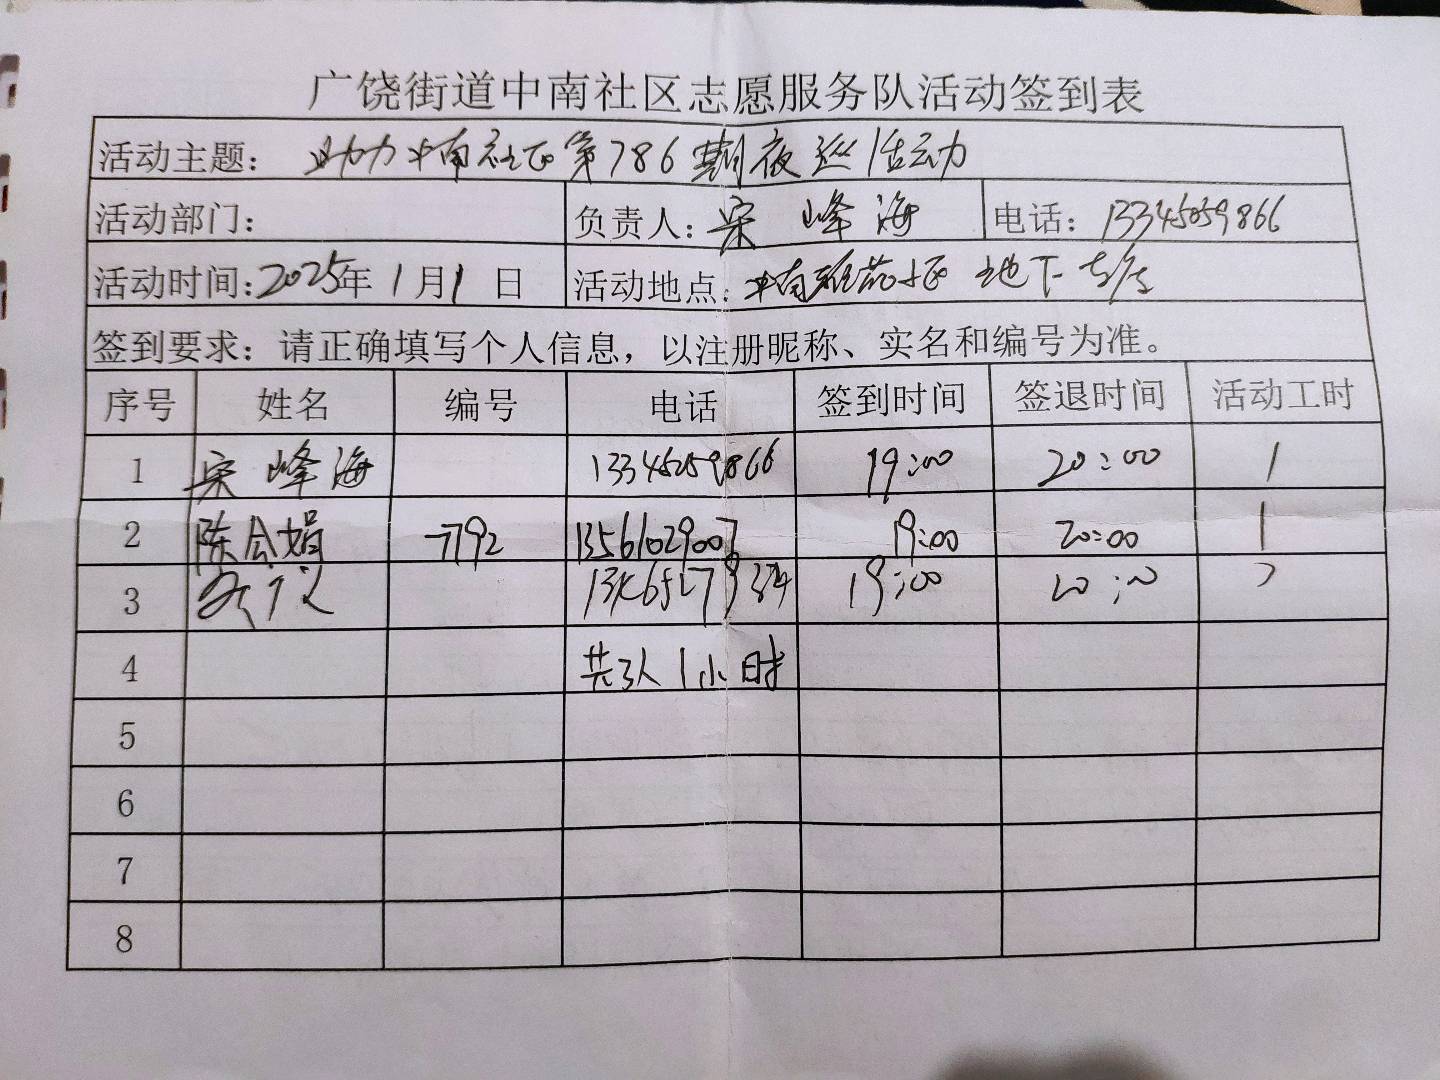 广饶街道中南社区志愿服务队活动签到表
活动主题： 助力中南社区第786期夜巡活动
活动部门： 负责人：宋峰海 电话：13345059866
活动时间：2025年1月1日 活动地点：中南 地下
签到要求：请正确填写个人信息，以注册昵称、实名和编号为准。
序号 姓名 编号 电话 签到时间 签退时间 活动工时
1 宋峰海 13345059866 19:00 20:00 1
2 陈会娟 7192 13561029007 19:00 20:00 1
3 19:00 20:00
4 共3人1小时
5
6
7
8